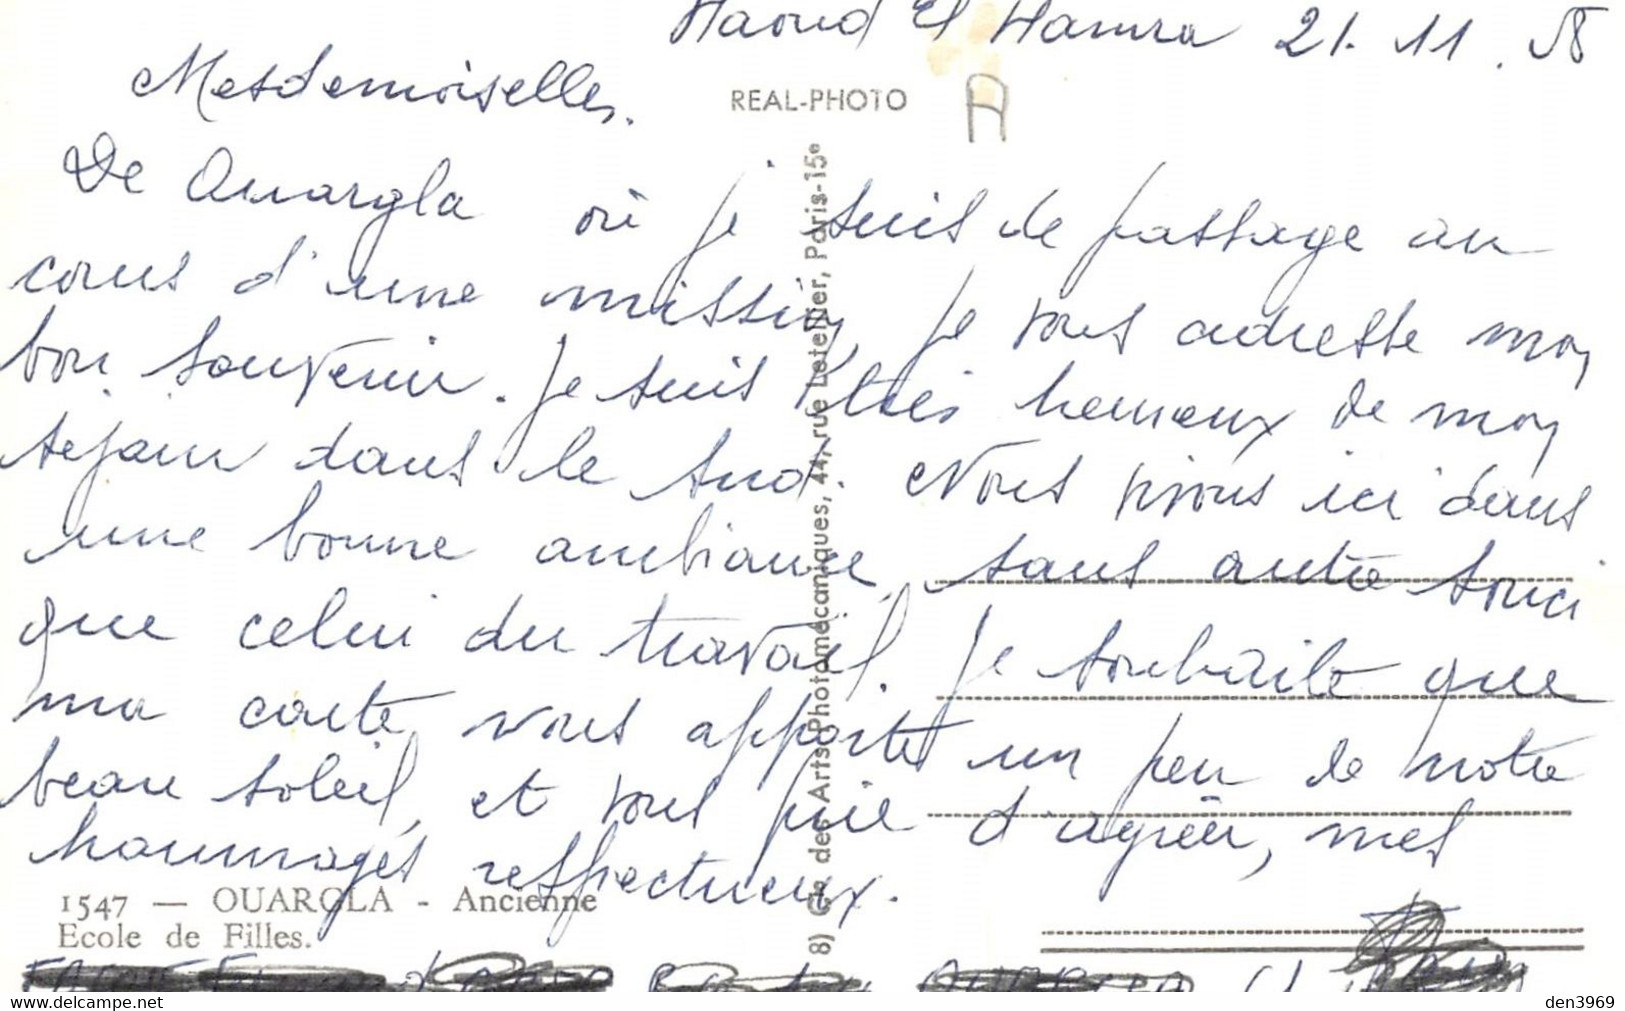 Haoud El Hamra 21.11.58
Mesdemoiselles.
REAL-PHOTO
A
De Ouargla où je suis de passage au
cours d'une mission, je vous adresse mon
bon souvenir. Je suis très heureux de mon
séjour dans le Sud. Nous vivons ici dans
une bonne ambiance, sans autre souci
que celui du travail. Je souhaite que
ma carte vous apporte un peu de notre
beau soleil, et vous prie d'agréer, mes
hommages respectueux.
1547 — OUARGLA - Ancienne
Ecole de Filles.
8) Cie des Arts Photomécaniques, 44, rue Letellier, Paris-15e
https://www.delcampe.net
den3969